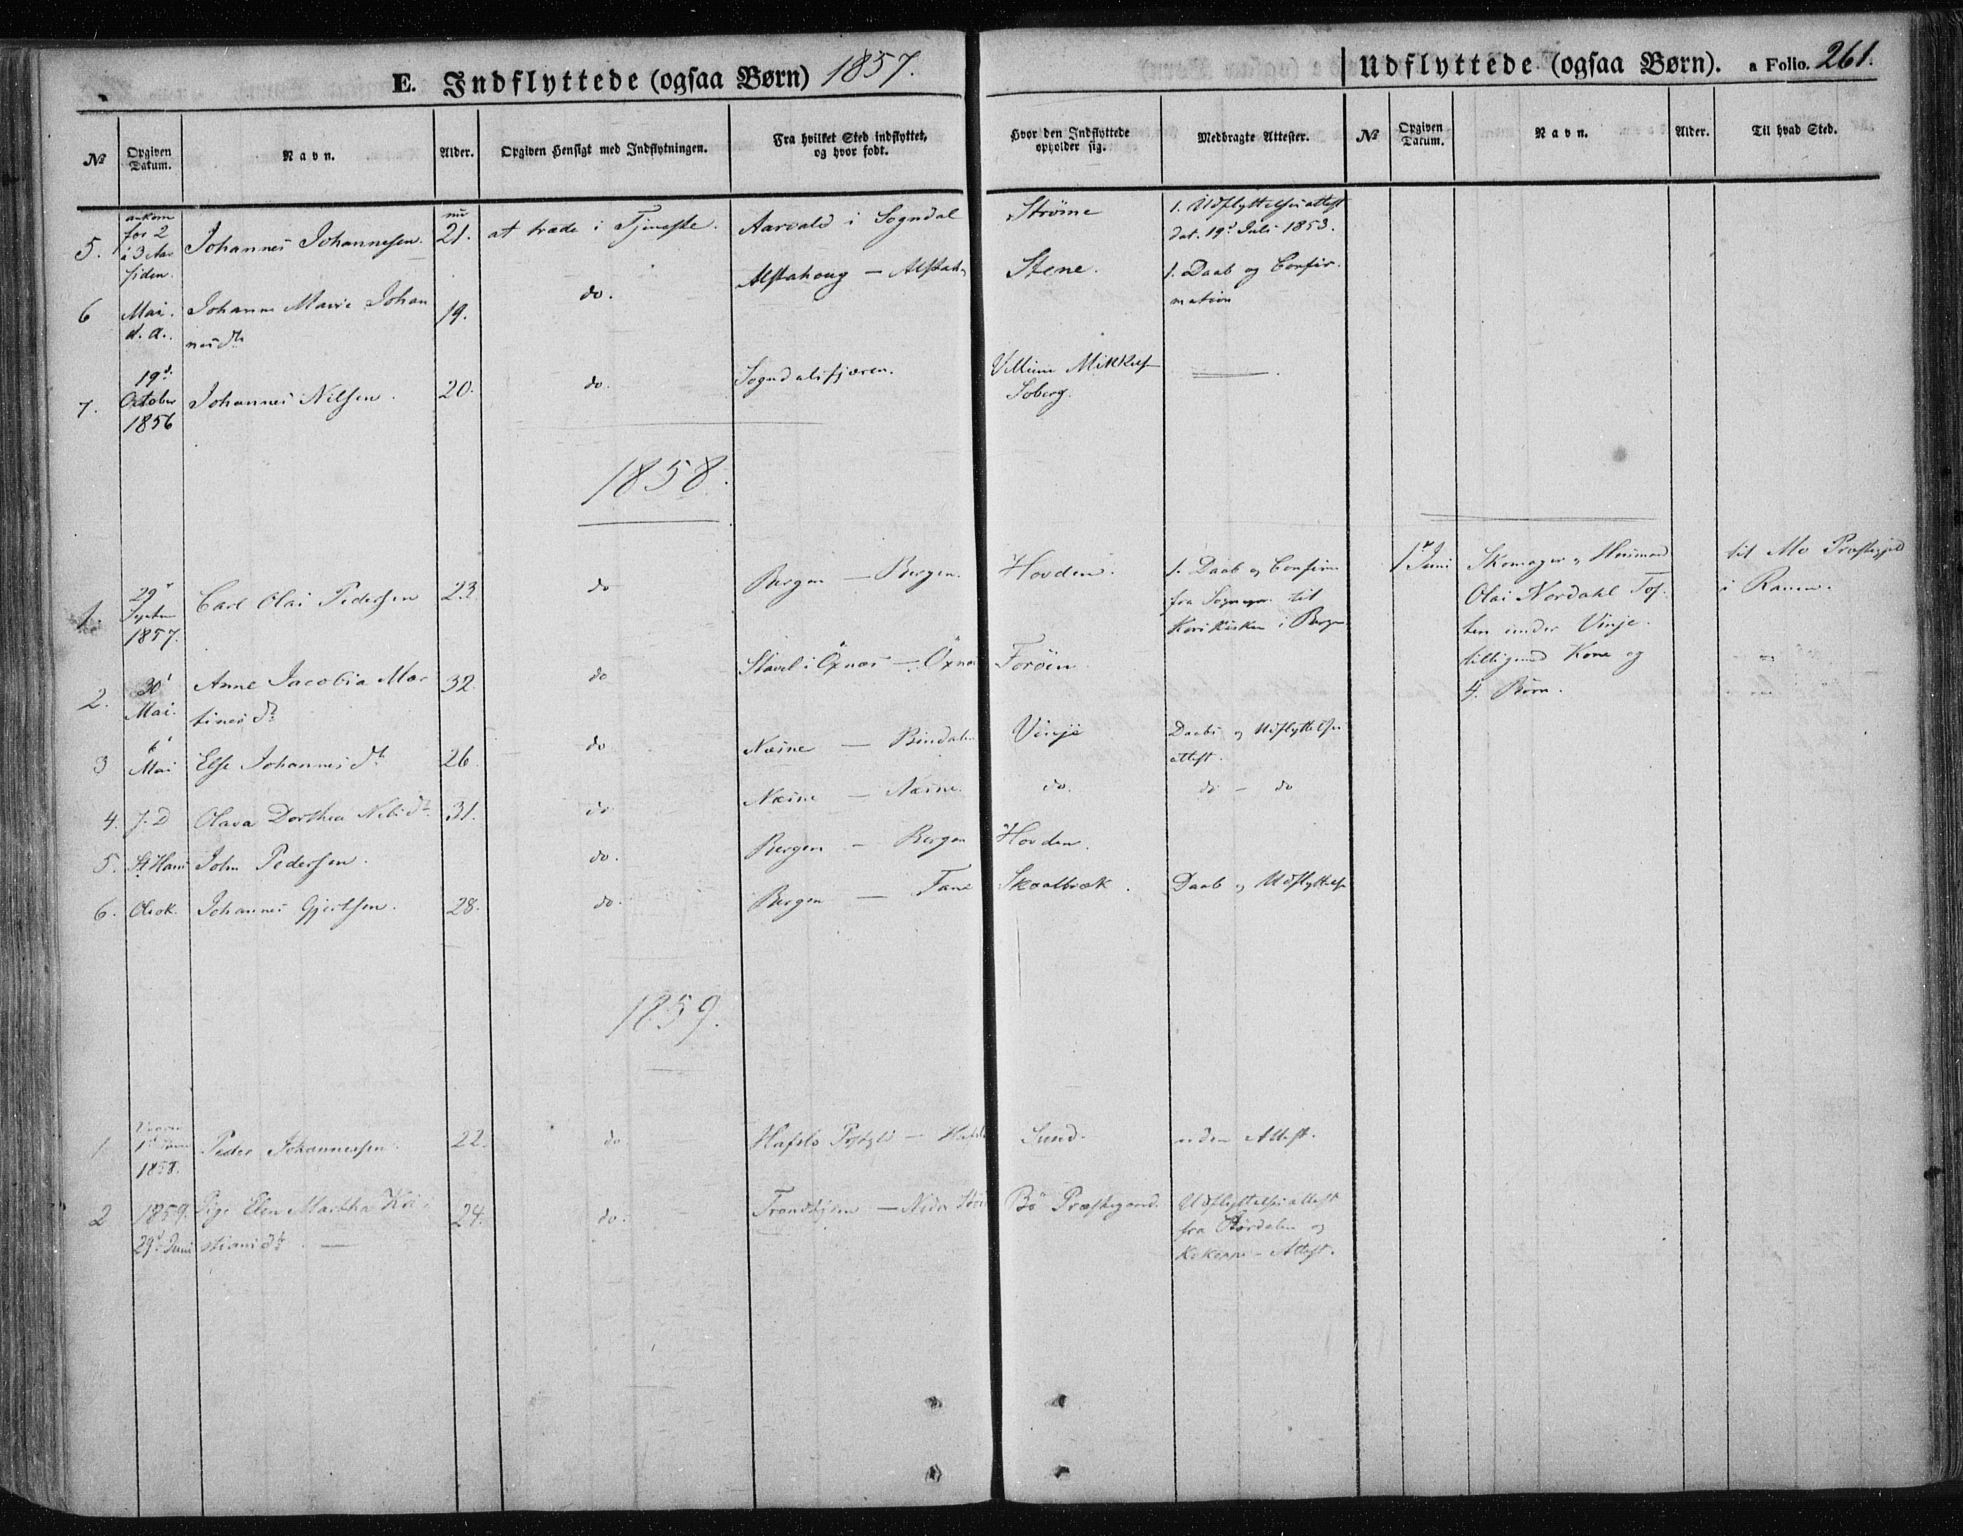 E. Indflyttede (ogsaa Børn) 1857.
Udflyttede (ogsaa Børn). a Folio. 261.
No Opgiven Datum. Navn. Alder. Opgiven Hensigt med Indflytningen. Fra hvilket Sted indflyttet, og hvor født. Hvor den Indflyttede opholder sig. Medbragte Attester. No Opgiven Datum. Navn. Alder. Til hvad Sted.
5. ankom for 2 à 3 Aar siden. Johannes Johannesen. nu 21. at træde i Tjeneste. i Sogndal Strøme 1. Udflyttelsesattest dat. 19d Juli 1853.
6 Mai d. a. Johanne Marie Johannesdtr 19. do. Alstahoug — Stene. 1. Daab og Confirmation
7. 19d October 1856 Johannes Nilsen. 20. do. Sogndalsfjæren. Mikkels Soberg.
1858.
1. 29d Septem 1857. Carl Olai Pedersen 23. do Bergen — Bergen. Hovden. 1. Daab og Confirm fra til Korskirken i Bergen
1r Juni Skomager og Huusmand til Mo Præstegjeld
Olai Nordahl Tof- i Ranen.
ten under Vinje.
tilligemed Kone og
4. Børn.
2. 30d Mai. Anne Jacobia Martinesdr 32. do i Øxnæs — Øxnæs Forøen
3 6d Mai Else Johannesdtr 26. do Næsne — Bindalen Vinje Daabs og Udflyttelses attest.
4. J. D Olava Dorthea Nilsdtr 31. do Næsne — Næsne. do. do — do
5. St Hans John Pedersen. do. Bergen — Bergen Hovden.
6. Olsok. Johannes Gjertsen. 28. do. Bergen — Fane Skaalbræk. Daab og Udflyttelse
1859.
1 1858. Peder Johannessen. 22. do Hafslo — Hafslo Sund. uden Attest.
2 1859. 29d Juni Pige Elen Martha Kristiansdtr — 24. do. Trondhjem — Bö Præstegaard. Udflyttelsesattest fra Stördalen og Kokoppe-Attest.